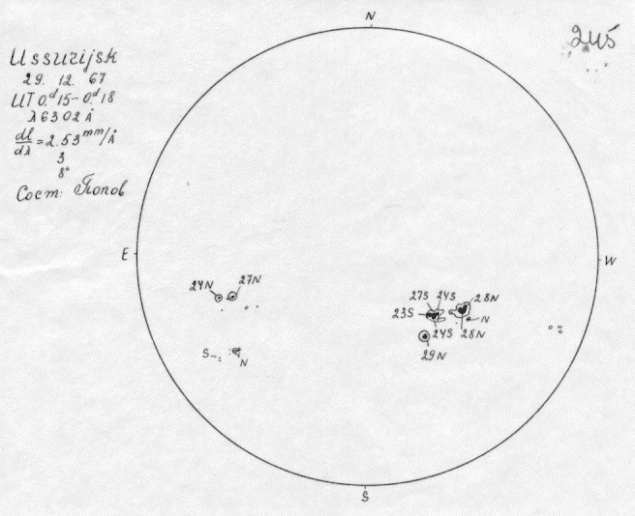 N
245
Ussurijsk
29. 12. 67
UT 0.ᵈ15-0.ᵈ18
λ6302Å
dl/dλ = 2.53 mm/Å
3
8"
Сост: Попов
E
W
24N 27N
27S 24S 28N
23S N
24S 28N
29N
S N
S